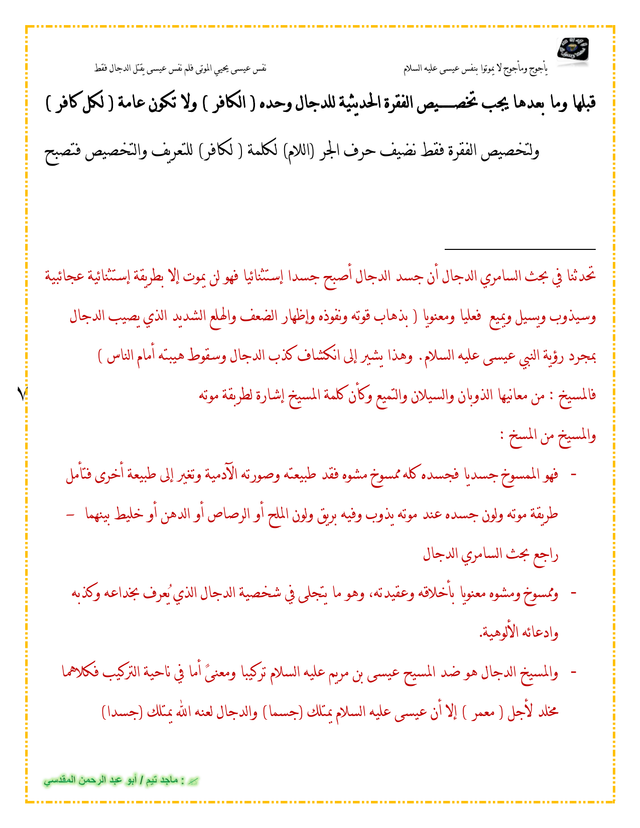 يأجوج ومأجوج لا يموتوا بنفس عيسى عليه السلام نفس عيسى يحيي الموتى فلم نفس عيسى يقتل الدجال فقط
قبلها وما بعدها يجب تخصيص الفقرة الحديثية للدجال وحده ( الكافر ) ولا تكون عامة ( لكل كافر )
ولتخصيص الفقرة فقط نضيف حرف الجر (اللام) لكلمة ( لكافر) للتعريف والتخصيص فتصبح
تحدثنا في بحث السامري الدجال أن جسد الدجال أصبح جسدا إستثنائيا فهو لن يموت إلا بطريقة إستثنائية عجائبية
وسيذوب ويسيل ويميع فعليا ومعنويا ( بذهاب قوته ونفوذه وإظهار الضعف والهلع الشديد الذي يصيب الدجال
بمجرد رؤية النبي عيسى عليه السلام. وهذا يشير إلى انكشاف كذب الدجال وسقوط هيبته أمام الناس )
فالمسيخ : من معانيها الذوبان والسيلان والتميع وكأن كلمة المسيخ إشارة لطريقة موته
٧
والمسيخ من المسخ :
- فهو الممسوخ جسديا فجسده كله ممسوخ مشوه فقد طبيعته وصورته الآدمية وتغير إلى طبيعة أخرى فتأمل
طريقة موته ولون جسده عند موته يذوب وفيه بريق ولون الملح أو الرصاص أو الدهن أو خليط بينهما –
راجع بحث السامري الدجال
- وممسوخ ومشوه معنويا بأخلاقه وعقيدته، وهو ما يتجلى في شخصية الدجال الذي يُعرف بخداعه وكذبه
وادعائه الألوهية.
- والمسيخ الدجال هو ضد المسيح عيسى بن مريم عليه السلام تركيبا ومعنىً أما في ناحية التركيب فكلاهما
مخلد لأجل ( معمر ) إلا أن عيسى عليه السلام يمتلك (جسما) والدجال لعنه الله يمتلك (جسدا)
: ماجد تيم / أبو عبد الرحمن المقدسي